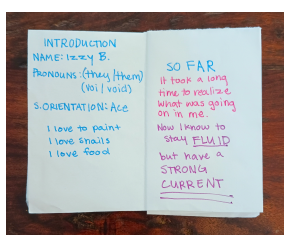 INTRODUCTION
NAME: Izzy B.
PRONOUNS: (they/them)
(Voi/void)
S. ORIENTATION: Ace
I love to paint
I love snails
I love food
SO FAR
It took a long
time to realize
what was going
on in me.
Now I know to
stay FLUID
but have a
STRONG
CURRENT